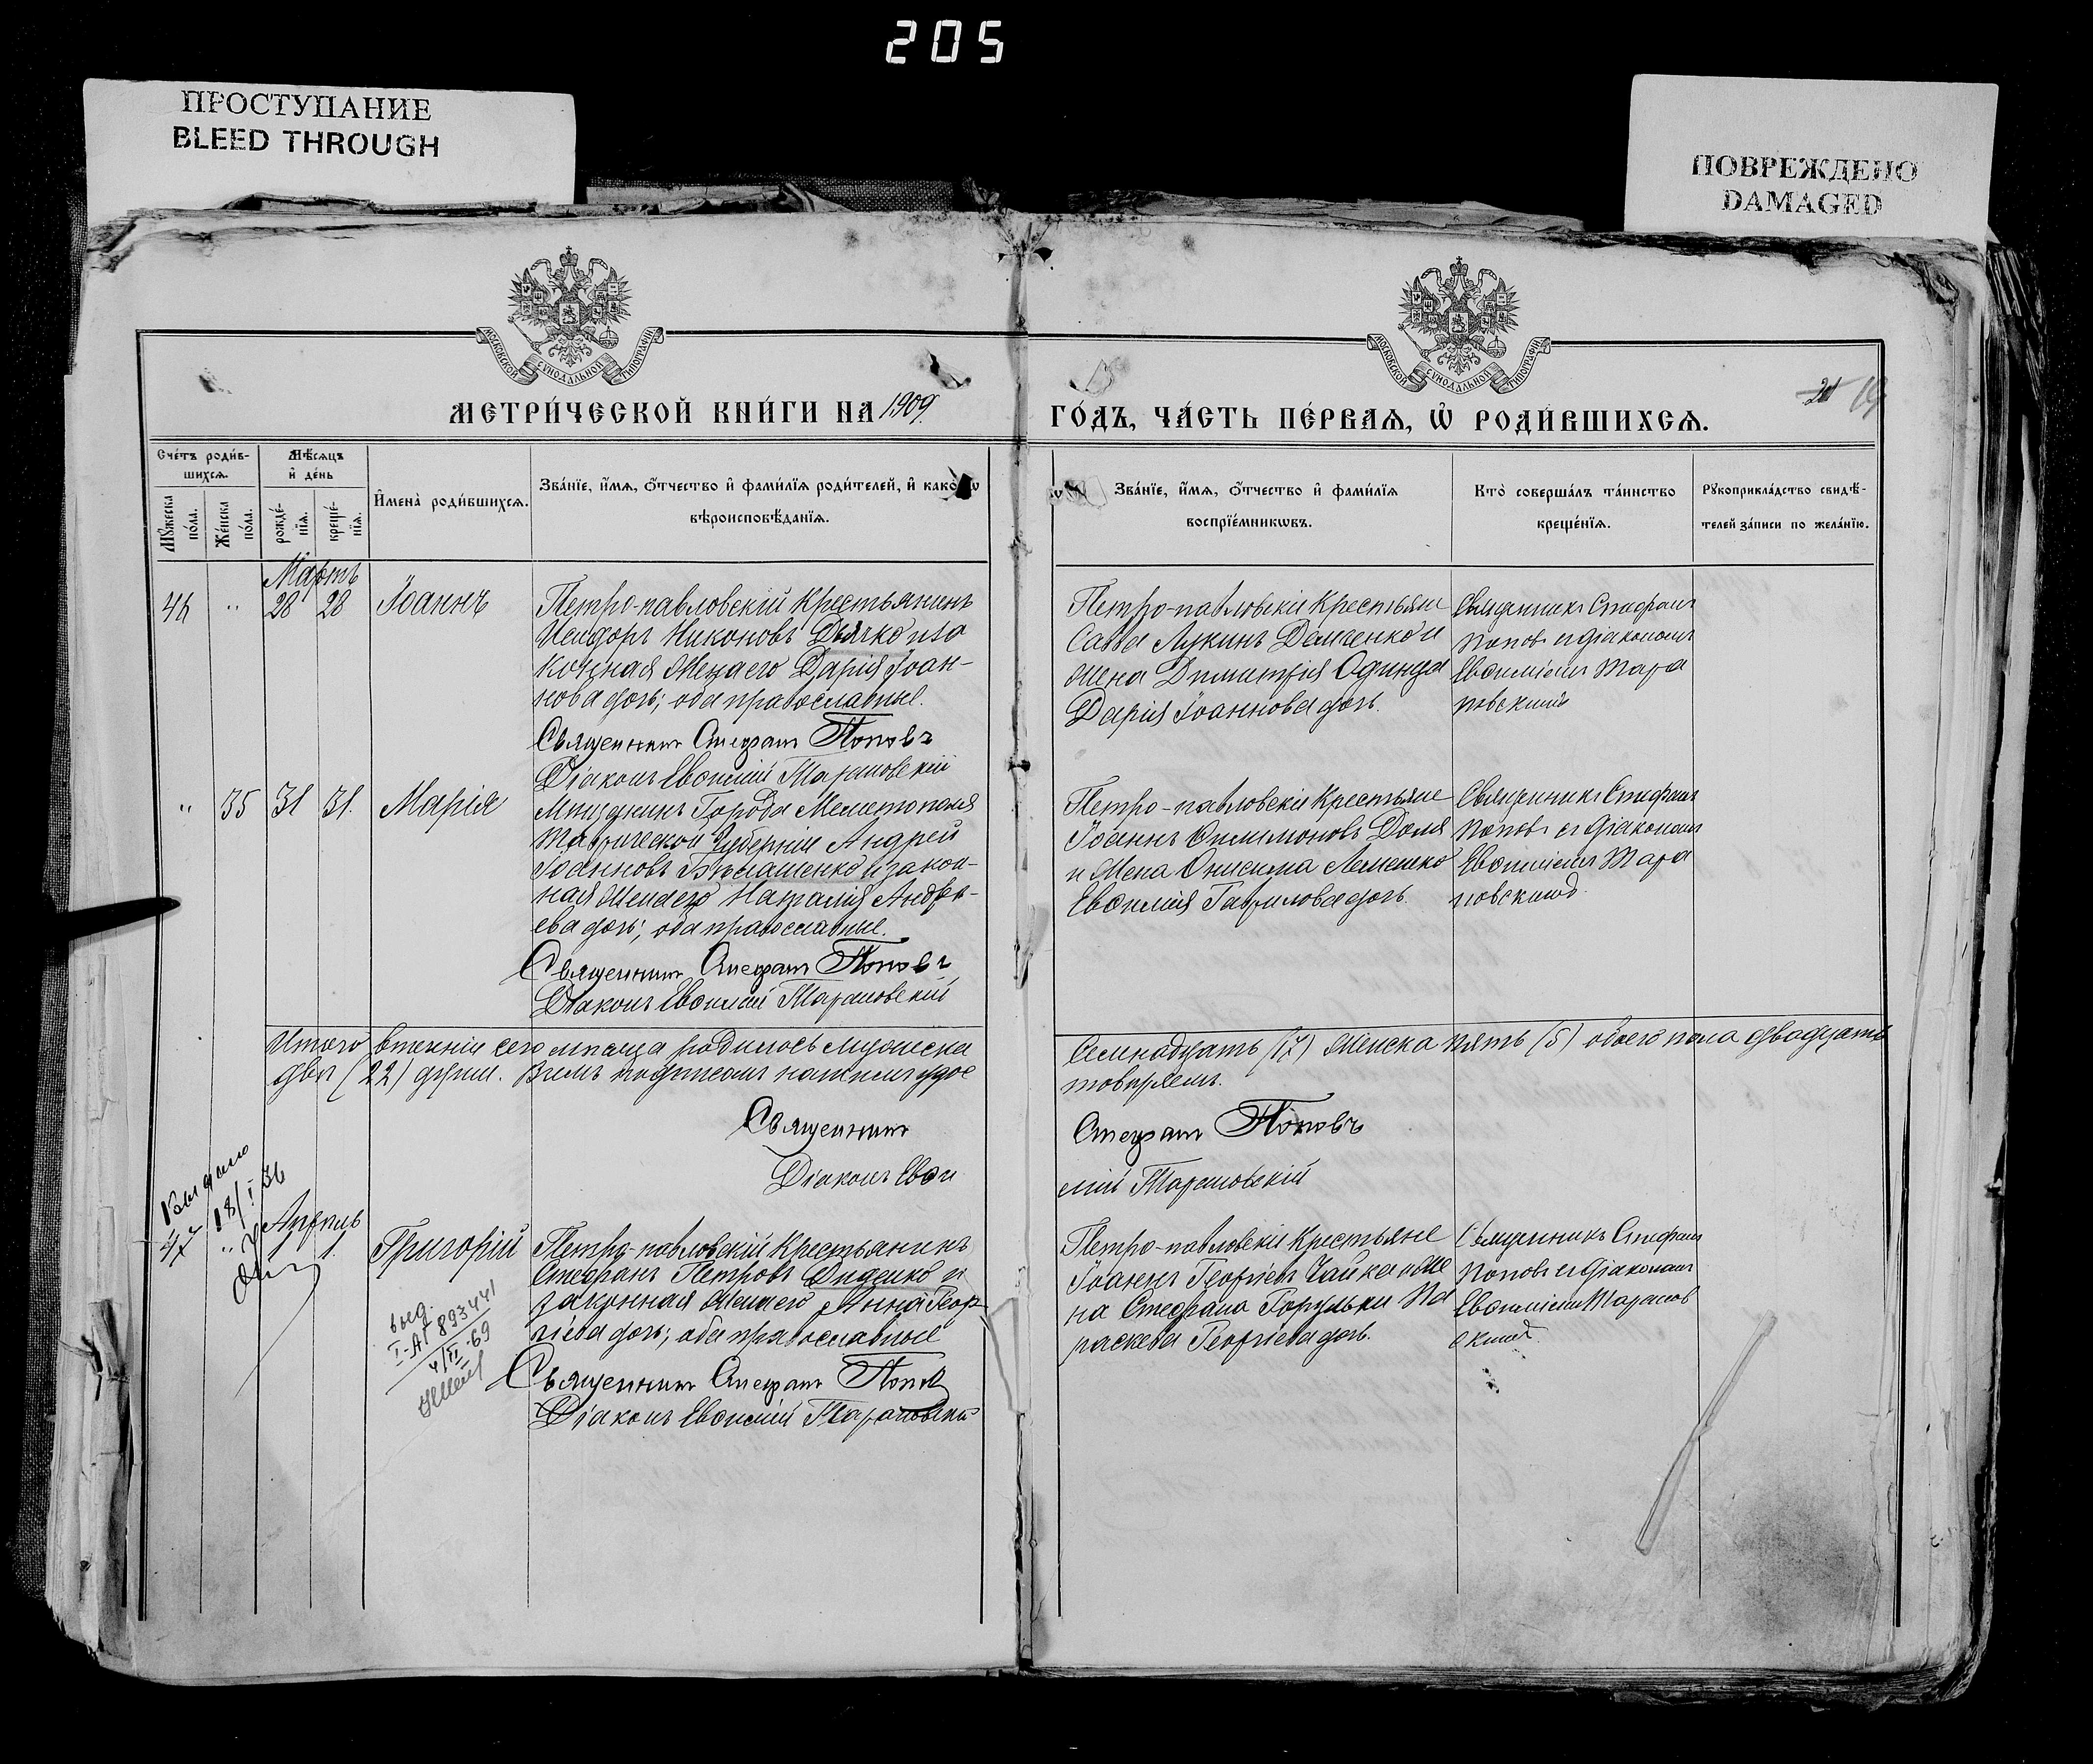 205
ПРОСТУПАНИЕ
BLEED THROUGH
ПОВРЕЖДЕНО
DAMAGED
МОСКОВСКОЙ СѴНОДАЛЬНОЙ ТИПОГРАФІИ
МОСКОВСКОЙ СѴНОДАЛЬНОЙ ТИПОГРАФІИ
МЕТРИ́ЧЕСКОЙ КНИ́ГИ НА 1909
ГО́ДЪ, ЧА́СТЬ ПЕ́РВАѦ, Ѡ҆ РОДИ́ВШИХСѦ.
Сче́тъ роди́вшихсѧ.
Мꙋ́жеска по́ла.
Же́нска по́ла.
Мѣ́сѧцъ и҆ де́нь
рожде́нїѧ.
креще́нїѧ.
И҆мена̀ роди́вшихсѧ.
Зва́нїе, и҆́мѧ, ѻ҆́тчество и҆ фами́лїѧ роди́телей, и҆ како́гѡ
вѣроисповѣ́данїѧ.
Зва́нїе, и҆́мѧ, ѻ҆́тчество и҆ фами́лїѧ
воспрїе́мникѡвъ.
Кто̀ соверша́лъ та́инство
креще́нїѧ.
Рꙋкоприкла́дство свидѣ́телей за́писи по жела́нїю.
Мартъ
28 28 Іоаннъ
Петро-павловскій крестьянинъ
Никоновъ Дьячко и за
конная жена его Дарія Іоан-
нова дочь; оба православные.
Священникъ Стефанъ Поповъ
Діаконъ Евѳимій Тарановскій
Петро-павловскіе крестьяне
Савва Лукинъ Демченко и
жена Димитрія Одинца
Дарія Іоаннова дочь.
Священникъ Стефанъ
Поповъ съ діакономъ
Евѳиміемъ Тара
новскимъ
" 35 31 31. Марія
Мѣщанинъ Города Мелитополя
Таврической Губерніи Андрей
Іоанновъ и закон-
ная жена его Наталія Андре-
ева дочь; оба православные.
Священникъ Стефанъ Поповъ
Діаконъ Евѳимій Тарановскій
Петро-павловскіе крестьяне
Іоаннъ Филимоновъ Доля
и жена Онисима Лемешко
Евѳимія Гаврилова дочь
Священникъ Стефанъ
Поповъ съ діакономъ
Евѳиміемъ Тара
новскимъ.
Итого втеченіи сего мѣсяца родилось мужеска
семнадцать (17) женска пять (5) обоего пола двадцать
двѣ (22) души. Въ чемъ подписомъ нашимъ удос
товѣряемъ.
Священникъ
Стефанъ Поповъ
Діаконъ Евѳи
мій Тарановскій
18/I 36
Апрѣль
47 " 1. Григорій
Петро-павловскій крестьянинъ
Стефанъ Петровъ Диденко и
законная жена его Анна Геор
гіева дочь; оба православные
Священникъ Стефанъ Попов
Діаконъ Евѳимій Тарановскій
Петро-павловскіе крестьяне
Іоаннъ Георгіевъ Чайка и же
на Стефана Горульки Па
раскева Георгіева дочь.
Священникъ Стефанъ
Поповъ съ діакономъ
Евѳиміемъ Таранов
скимъ.
выд.
I-АГ 893441
4/II-69